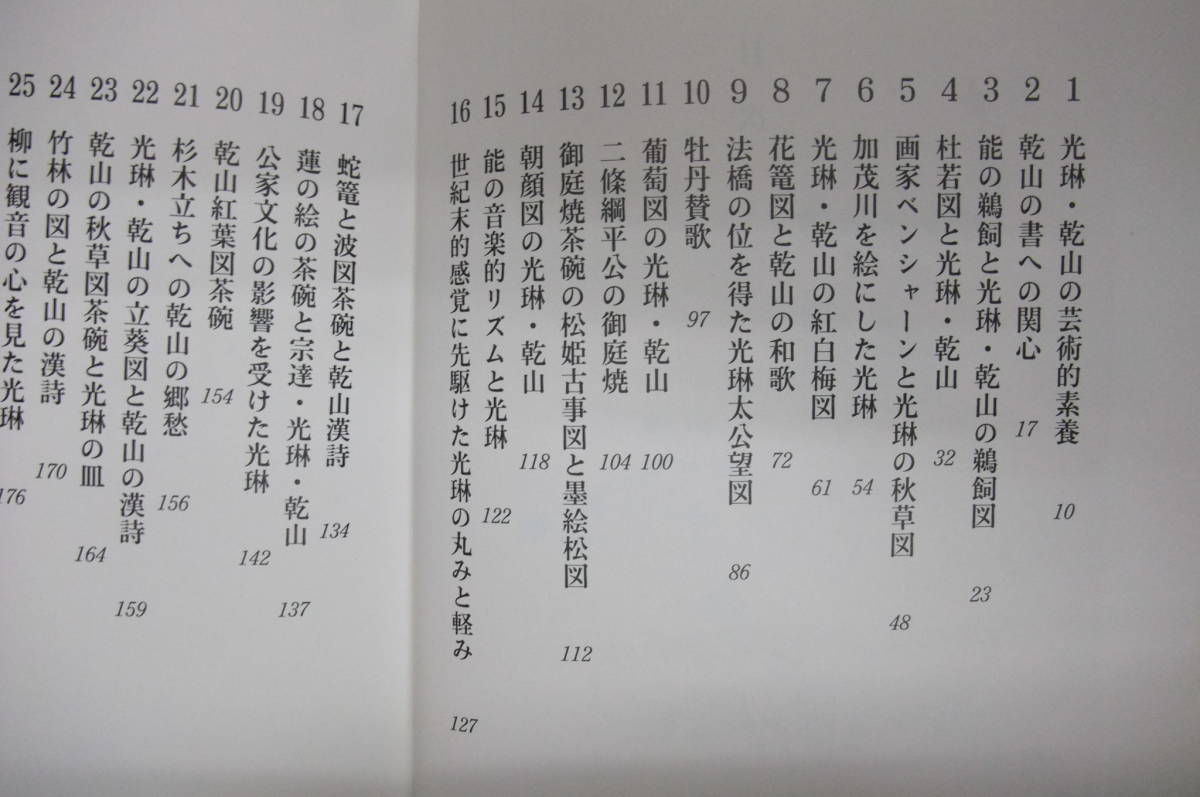 1 光琳・乾山の芸術的素養 10
2 乾山の書への関心 17
3 能の鵜飼と光琳・乾山の鵜飼図 23
4 杜若図と光琳・乾山 32
5 画家ベンシャーンと光琳の秋草図 48
6 加茂川を絵にした光琳 54
7 光琳・乾山の紅白梅図 61
8 花篭図と乾山の和歌 72
9 法橋の位を得た光琳太公望図 86
10 牡丹賛歌 97
11 葡萄図の光琳・乾山 100
12 二條綱平公の御庭焼 104
13 御庭焼茶碗の松姫古事図と墨絵松図 112
14 朝顔図の光琳・乾山 118
15 能の音楽的リズムと光琳 122
16 世紀末的感覚に先駆けた光琳の丸みと軽み 127
17 蛇篭と波図茶碗と乾山漢詩 134
18 蓮の絵の茶碗と宗達・光琳・乾山 137
19 公家文化の影響を受けた光琳 142
20 乾山紅葉図茶碗 154
21 杉木立ちへの乾山の郷愁 156
22 光琳・乾山の立葵図と乾山の漢詩 159
23 乾山の秋草図茶碗と光琳の皿 164
24 竹林の図と乾山の漢詩 170
25 柳に観音の心を見た光琳 176